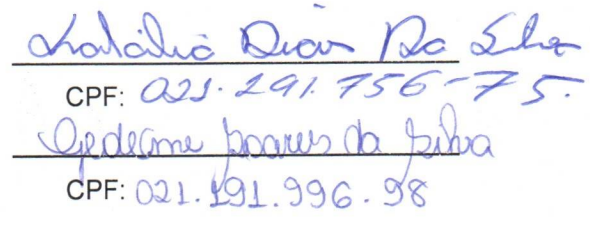 Natália Dias Da Silva
CPF: 021.291.756-75.
Gedeone Soares da Silva
CPF: 021.191.996.98